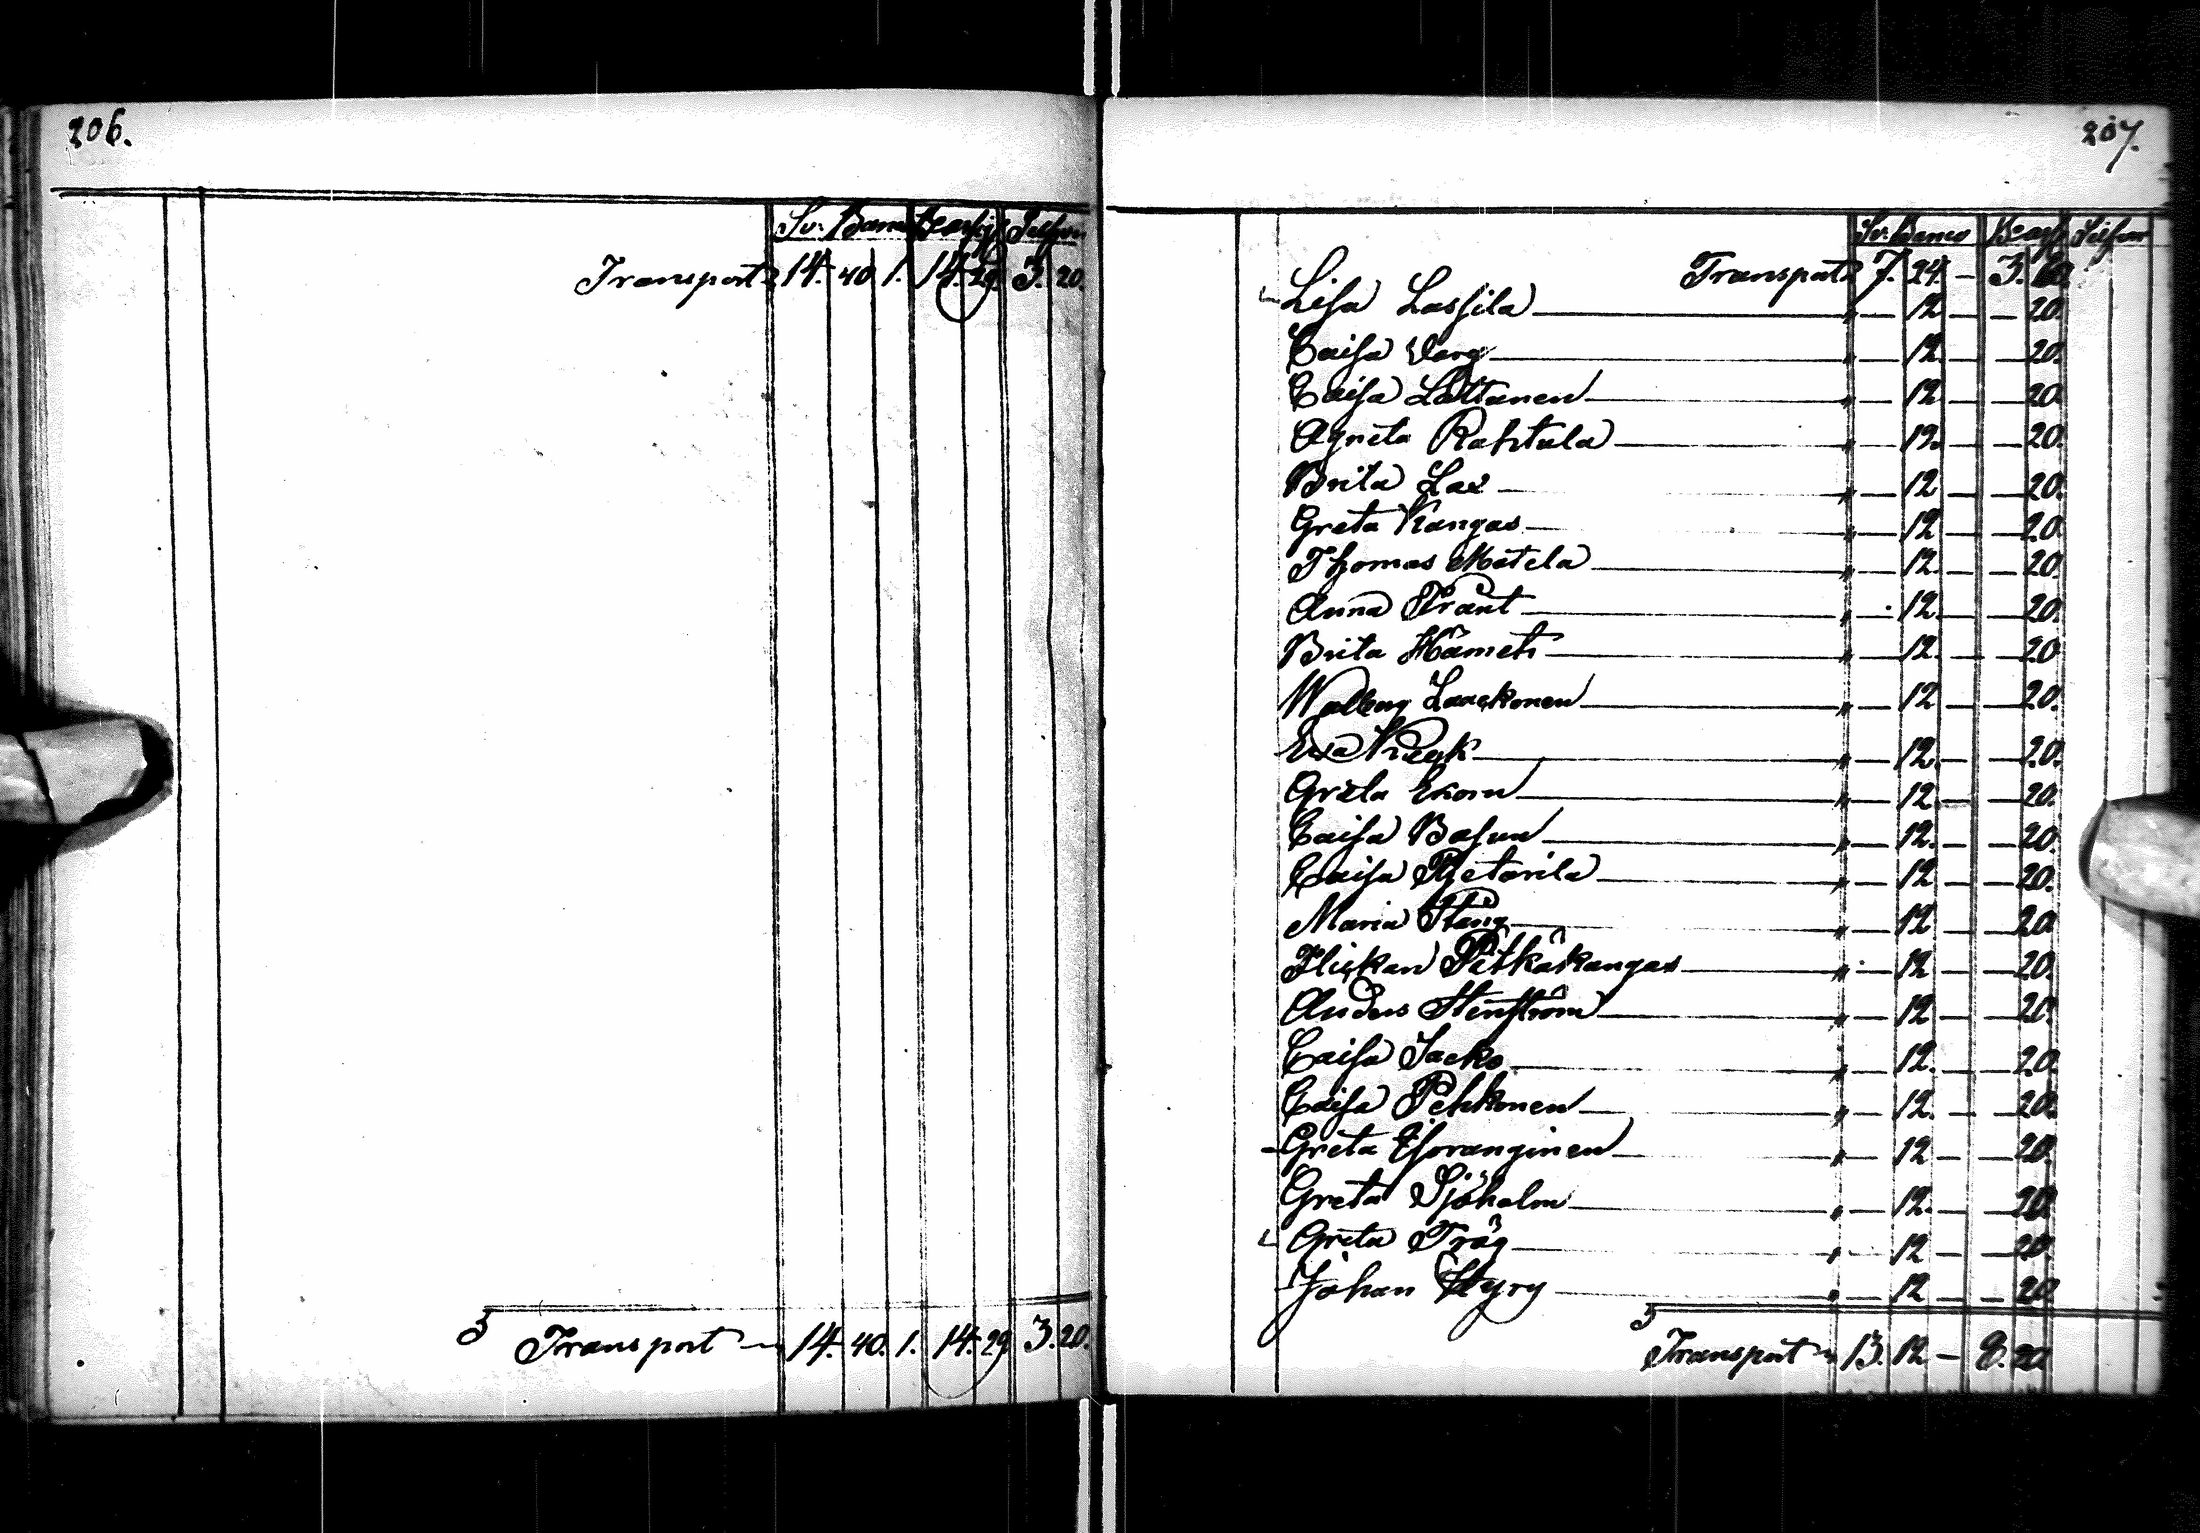 206.
Sv. Banco Bcoass Silfver
Transport 14. 40. 1. 14. 29. 3. 20.
Transport 14. 40. 1. 14. 29 3. 20.
207.
Sv. Banco Silfver
Transport 7. 24. — 3. 60.
Lisa Lassila " — 12 — — 20.
Caisa Varg " — 12 — — 20.
Caisa Lattanen " — 12 — — 20
Agneta Rahtula " — 12. — — 20.
Brita Lax " — 12 — — 20.
Greta Kangas " — 12 — — 20.
Thomas Matela " — 12. — — 20.
Anna Prant " — 12. — — 20.
Brita " — 12. — — 20
Walborg Laackonen " — 12 — — 20.
Eva " — 12. — — 20.
Greta Ekorn " — 12. — — 20.
Caisa Basun " — 12. — — 20.
Caisa Pjetarila " — 12 — — 20.
Maria " — 12 — — 20
Flickan Pitkäkangas " — 12 — — 20.
Anders Stenström " — 12 — — 20.
Caisa Jacko " — 12. — — 20.
Caisa Pekkonen " — 12. — — 20.
Greta " — 12 — — 20.
Greta Sjöholm " — 12. — — 20
Greta Tråg " — 12 — — 20.
Johan Hyry " — 12 — — 20
Transport 13. 12 — 8. 20